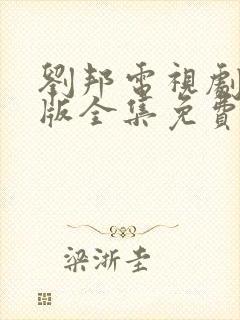 劉邦電視劇
版全集免費
梁浙圭